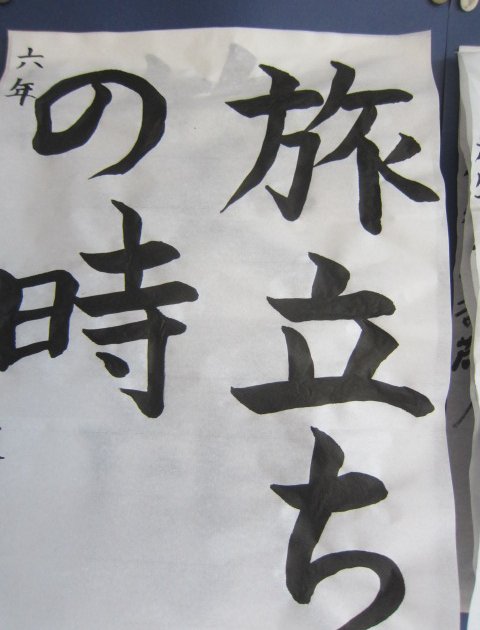 旅立ち
の時
六年